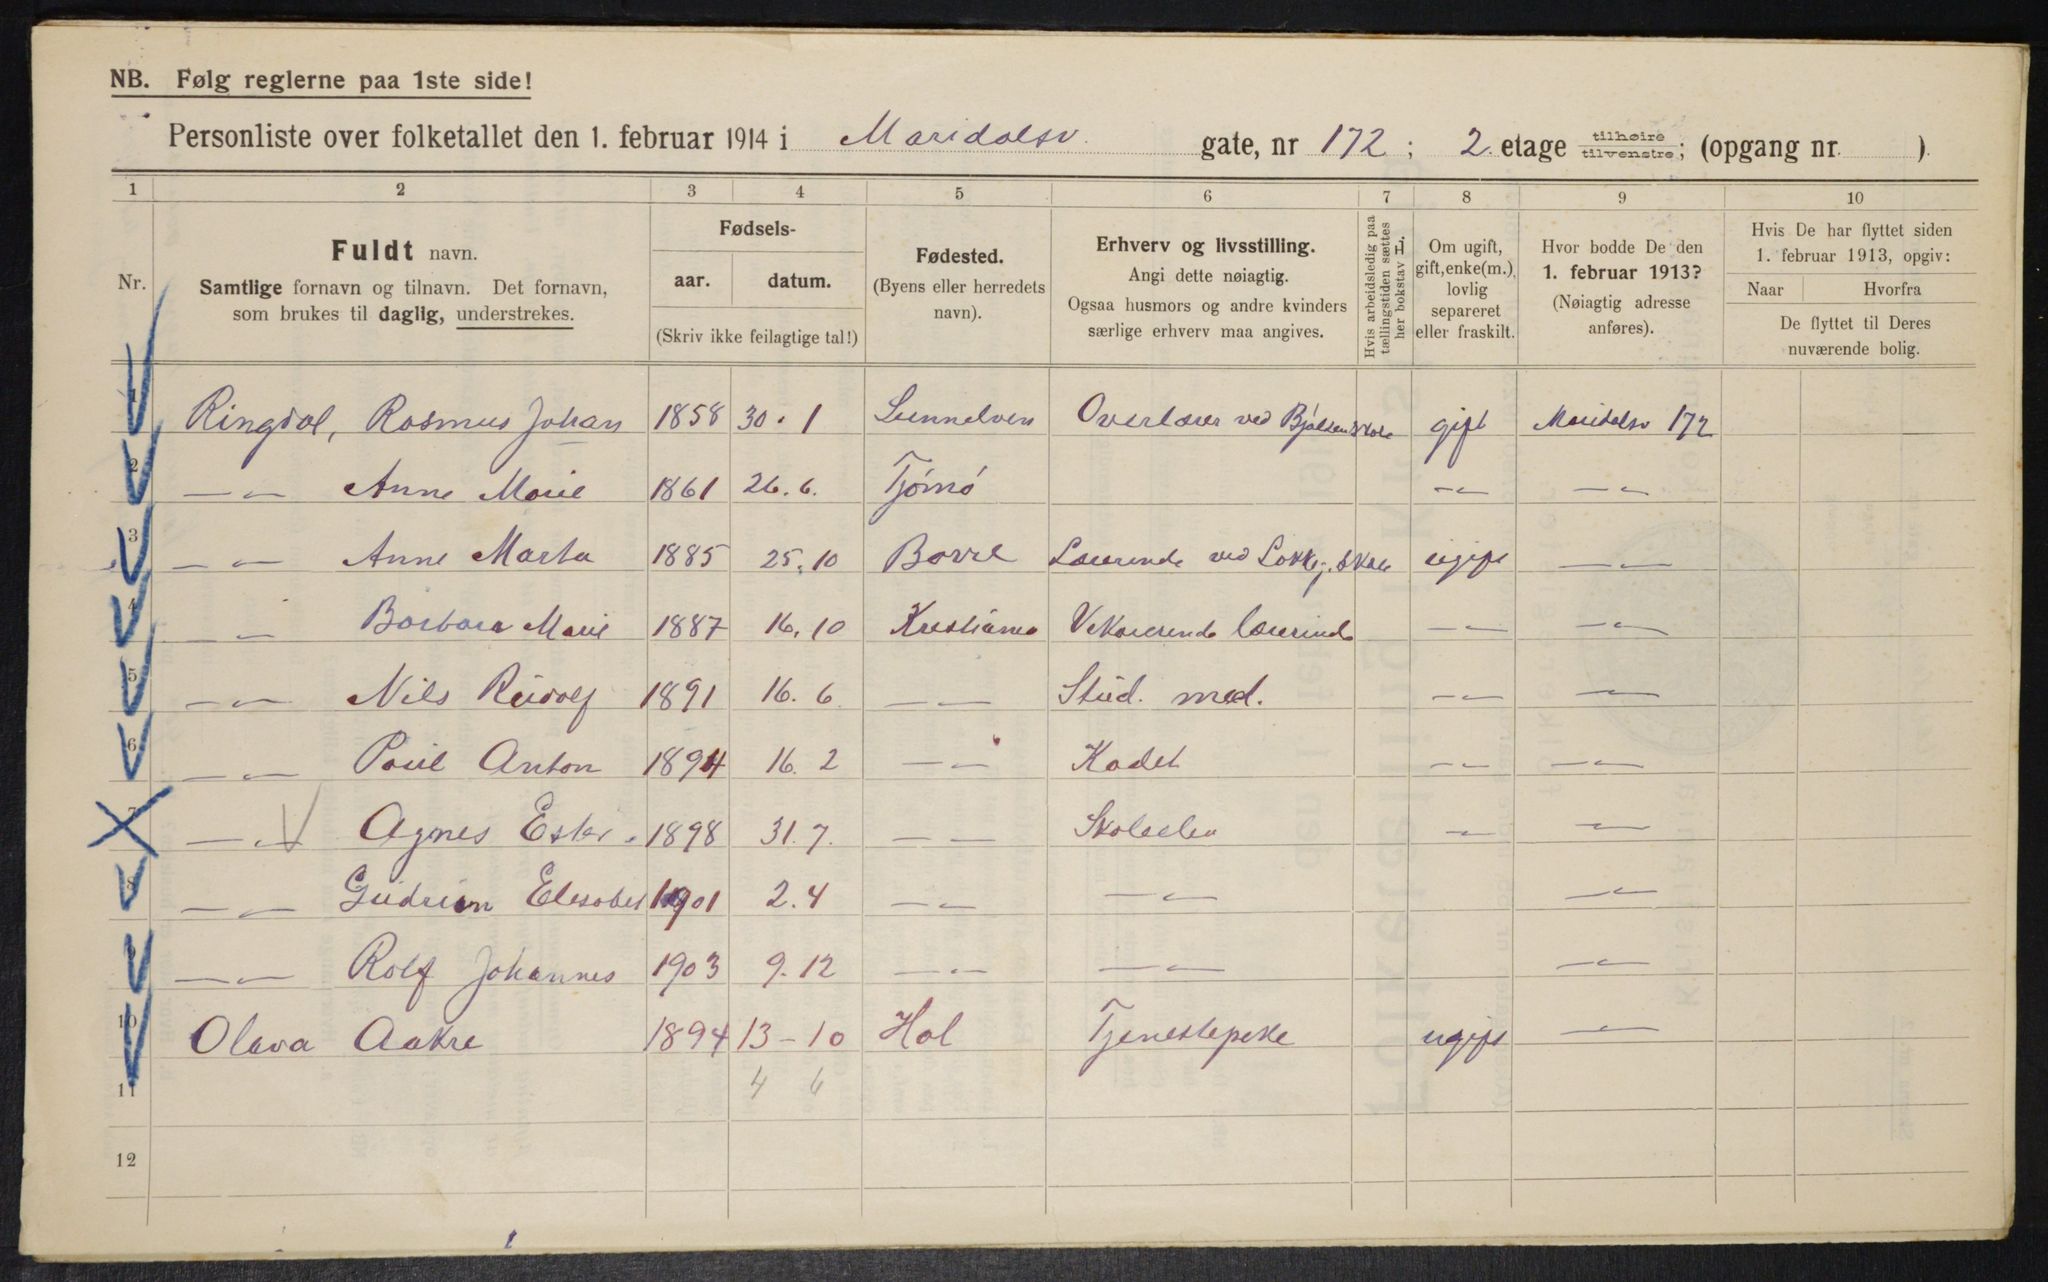 NB. Følg reglerne paa 1ste side!
Personliste over folketallet den 1. februar 1914 i Maridalsv. gate, nr 172 ; 2 etage tilhøire tilvenstre ; (opgang nr. ).
1 2 3 4 5 6 7 8 9 10
Nr.
Fuldt navn.
Samtlige fornavn og tilnavn. Det fornavn,
som brukes til daglig, understrekes.
Fødsels-
aar. datum.
(Skriv ikke feilagtige tal!)
Fødested.
(Byens eller herredets
navn).
Erhverv og livsstilling.
Angi dette nøiagtig.
Ogsaa husmors og andre kvinders
særlige erhverv maa angives.
Hvis arbeidsledig paa
tællingstiden sættes
her bokstav L.
Om ugift,
gift, enke(m.),
lovlig
separeret
eller fraskilt.
Hvor bodde De den
1. februar 1913?
(Nøiagtig adresse
anføres).
Hvis De har flyttet siden
1. februar 1913, opgiv:
Naar Hvorfra
De flyttet til Deres
nuværende bolig.
1 Ringdal, Rasmus Johan 1858 30. 1 Sunnelven Overlærer ved Bjølsen skole gift Maridalsv 172
2 — „ — Anne Marie 1861 26. 6. Tjømø — „ — — „ —
3 — „ — Anne Marta 1885 25. 10 Borre Lærerinde ved Lakkeg. skole ugift — „ —
4 — „ — Barbara Marie 1887 16. 10 Kristiania Vikarierende lærerinde — „ — — „ —
5 — „ — Nils Rudolf 1891 16. 6. — „ — Stud. med. — „ — — „ —
6 — „ — Poul Anton 1894 16. 2 — „ — Kadet — „ — — „ —
7 — „ — Agnes Ester 1898 31. 7. — „ — Skoleelev — „ — — „ —
8 — „ — Gudrun Elisabet 1901 2. 4 — „ — — „ — — „ —
9 — „ — Rolf Johannes 1903 9. 12 — „ — — „ — — „ —
10 Olava Aakre 1894 13 – 10 Hol Tjenestepike ugift — „ —
11 4 6
12